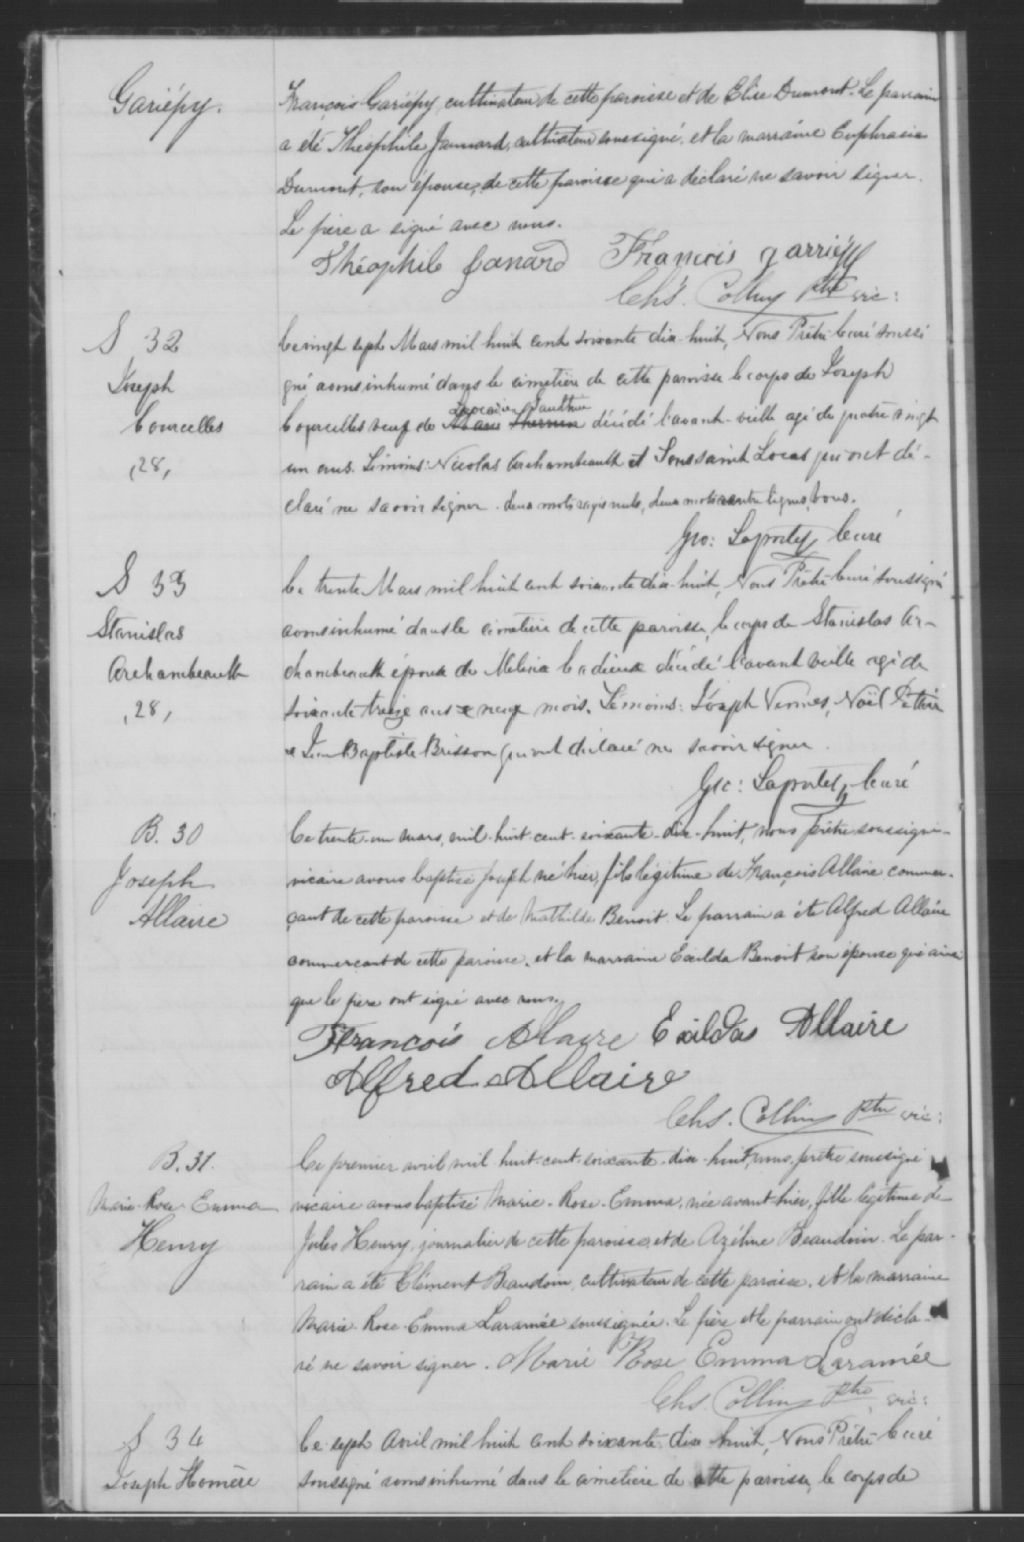 Gariépy.
François Gariépy, cultivateur de cette paroisse et de Elise Dumont. Le parrain
a été Théophile Janard, cultivateur soussigné, et la marraine Euphrasie
Dumont, son épouse, de cette paroisse qui a déclaré ne savoir signer.
Le père a signé avec nous.
Théophile Janard François garriépy
Chs. Collin Ptre vic:
S 32
Joseph
Courcelles
,28,
Ce vingt sept Mars mil huit cent soixante dix-huit, Nous Prêtre Curé soussi
gné avons inhumé dans le cimetière de cette paroisse le corps de Joseph
Gauthier
Courcelles veuf de Marie décédé l'avant-veille agé de quatre vingt
un ans. Témoins: Nicolas Archambeault et Toussaint Locas qui ont dé-
claré ne savoir signer. deux mots rayés nuls, deux mots entre lignes, bons.
Geo: Laporte, Curé
S 33
Stanislas
Archambeault
,28,
Ce trente Mars mil huit cent soixante dix-huit, Nous Prêtre Curé soussigné
avons inhumé dans le cimetière de cette paroisse, le corps de Stanislas Ar-
chambeault époux de Melina Cadieux décédé l'avant veille agé de
soixante treize ans et neuf mois. Témoins: Joseph Vermes, Noël
et Jean Baptiste Brisson qui ont déclaré ne savoir signer.
Geo: Laporte, Curé
B. 30
Joseph
Allaire
Ce trente-un mars, mil-huit-cent-soixante-dix-huit, nous prêtre soussigné
vicaire avons baptisé Joseph né hier, fils légitime de François Allaire commer-
çant de cette paroisse et de Mathilde Benoit. Le parrain a été Alfred Allaire
commerçant de cette paroisse, et la marraine Exilda Benoit son épouse qui ainsi
que le père ont signé avec nous.
François Allaire Exildas Allaire
Alfred Allaire
Chs. Collin Ptre vic:
B. 31.
Marie-Rose-Emma
Henry
Ce premier avril mil-huit-cent-soixante-dix-huit, nous, prêtre soussigné
vicaire avons baptisé Marie-Rose-Emma, née avant-hier, fille légitime de
Jules Henry, journalier de cette paroisse, et de Azéline Beaudoin. Le par-
rain a été Clément Beaudoin, cultivateur de cette paroisse, et la marraine
Marie-Rose-Emma Laramée soussignée. Le père et le parrain ont décla-
ré ne savoir signer. Marie Rose Emma Laramée
Chs. Collin Ptre, vic:
S 34
Joseph Homère
Ce sept Avril mil huit cent soixante dix huit, Nous Prêtre Curé
soussigné avons inhumé dans le cimetière de cette paroisse, le corps de